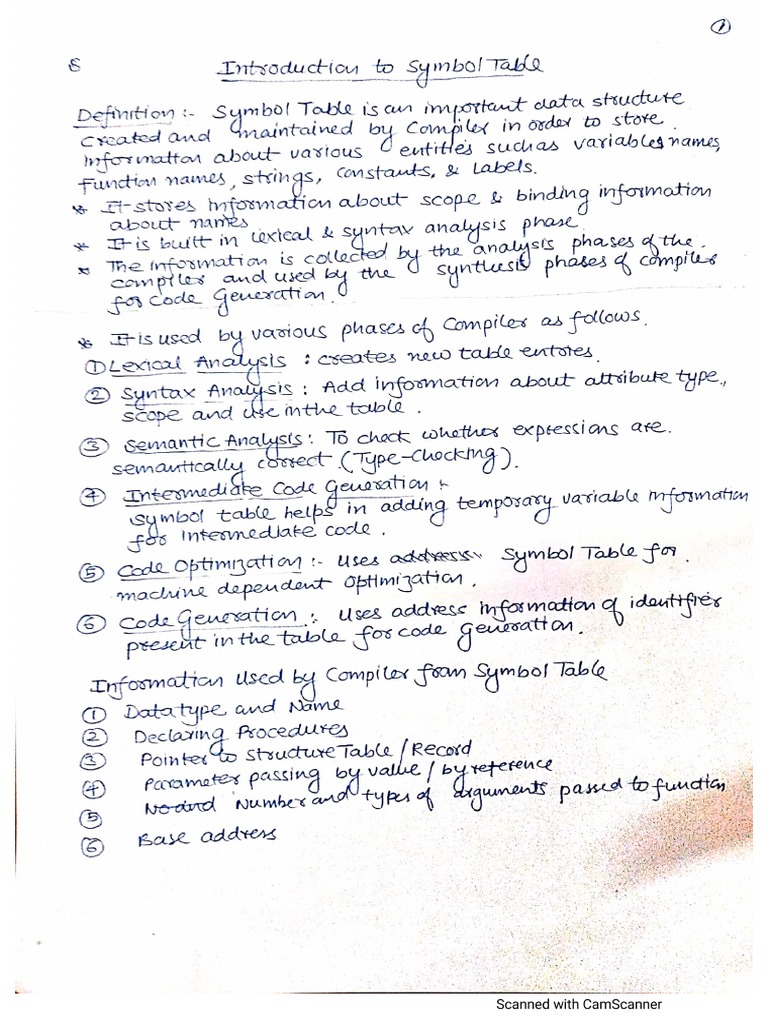 ①
8
Introduction to Symbol Table
Definition :- Symbol Table is an important data structure
created and maintained by Compiler in order to store
information about various entities such as variables names,
function names, strings, constants, & Labels.
* It stores information about scope & binding information
about names
* It is built in lexical & syntax analysis phase
* The information is collected by the analysis phases of the
compiler and used by the synthesis phases of compiler
for code Generation.
* It is used by various phases of Compiler as follows.
① Lexical Analysis : creates new table entries.
② Syntax Analysis : Add information about attribute type,
scope and use in the table.
③ Semantic Analysis : To check whether expressions are
semantically correct (Type-Checking).
④ Intermediate Code Generation :-
Symbol table helps in adding temporary variable information
for intermediate code.
⑤ Code Optimization :- Uses address Symbol Table for
machine dependent optimization.
⑥ Code Generation :- Uses address information of identifier
present in the table for code generation.
Information Used by Compiler from Symbol Table
① Data type and Name
② Declaring Procedures
③ Pointer to structure Table / Record
④ Parameter passing by value / by reference
⑤ Number and types of arguments passed to function
⑥ Base address
Scanned with CamScanner